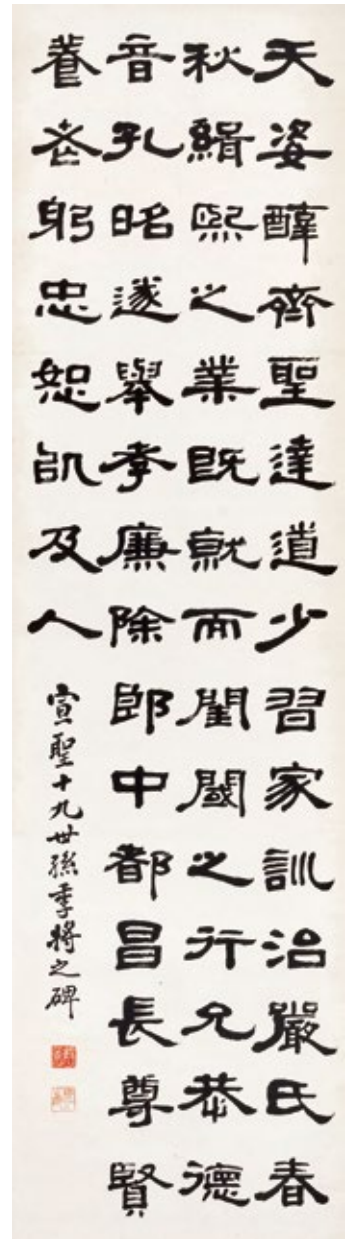 天姿醇齊聖達道少習家訓治嚴氏春
秋緝熙之業既就而閨閾之行允恭德
音孔昭遂舉孝廉除郎中都昌長尊賢
養老躬忠恕以及人
宣聖十九世孫季將之碑